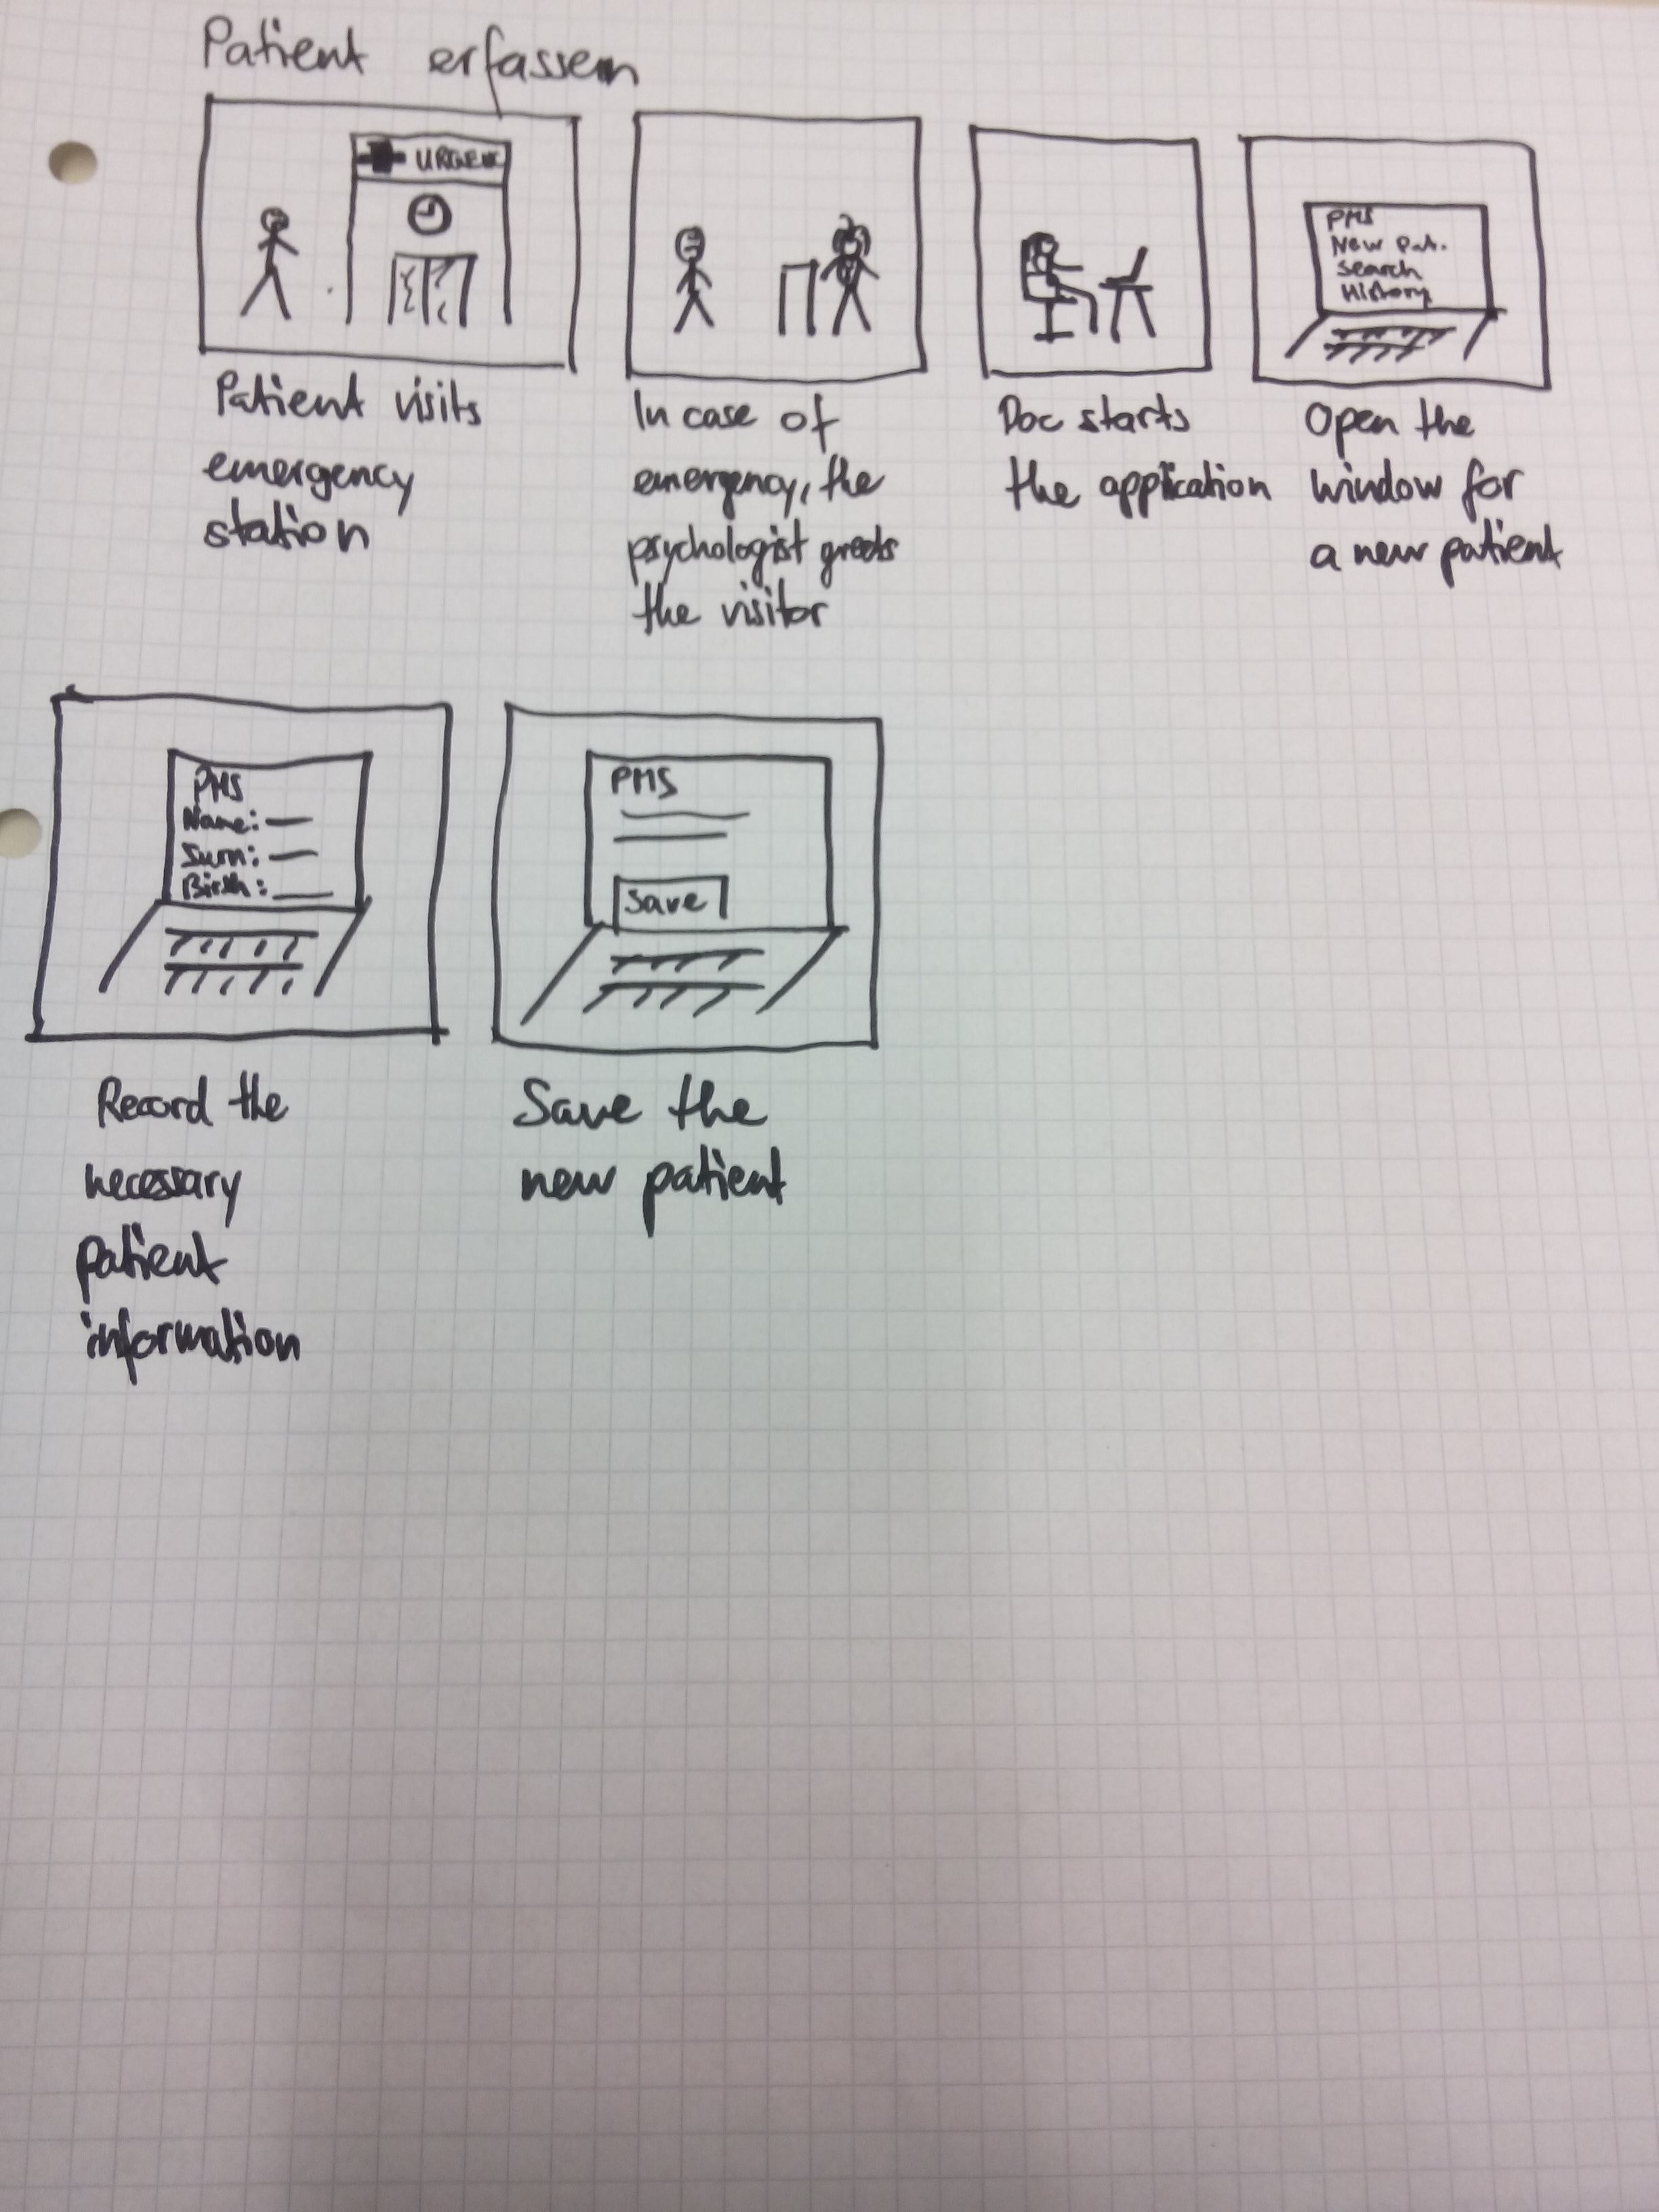 Patient erfassen
URGENC
Patient visits
emergency
station
In case of
emergency, the
psychologist greets
the visitor
Doc starts
the application
PMS
New Pat.
Search
History
Open the
window for
a new patient
PMS
Name:
Surn:
Birth:
Record the
necessary
patient
information
PMS
Save
Save the
new patient